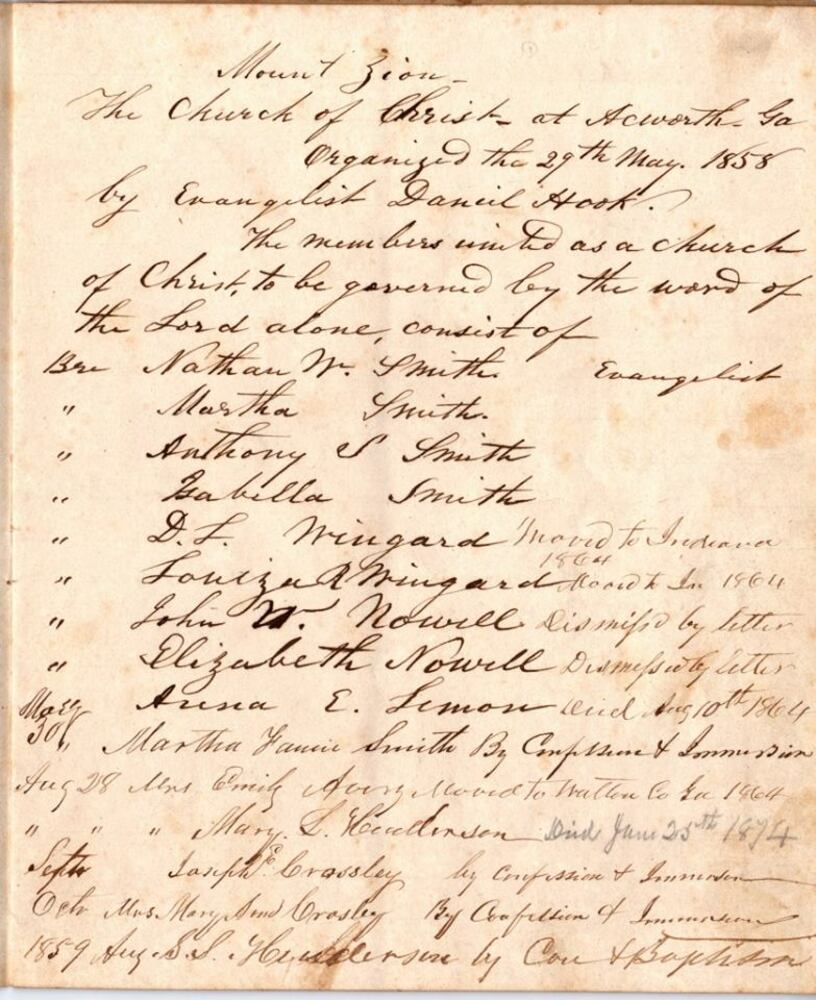 Mount Zion -
The Church of Christ - at Acworth - Ga
Organized the 29th May. 1858
by Evangelist Daniel Hook.
The members united as a church
of Christ, to be governed by the word of
the Lord alone, consist of
Bre Nathan W. Smith. Evangelist
" Martha Smith.
" Anthony S Smith
" Isabella Smith
" D. L. Wingard Moved to Indiana
1864
" Louiza A Wingard Moved to In 1864
" John W. Nowell Dismissd by letter
" Elizabeth Nowell Dismissed by letter
" E. Lemon Died Aug 10th 1864
May
30 " Martha Fannie Smith By Confession & Immersion
Aug 28 Mrs Emily Avery Moved to Walton Co Ga 1864
" " " Mary. L. Henderson Died June 25th 1874
Septr Joseph E. Crossley by confession & Immersion
Octr Mrs. Mary Ann Crosley By Confession & Immersion
1859 Aug. S. S. Henderson by Con & Baptism